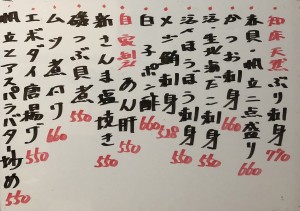 知床天然ぶり刺身 770
春貝、帆立二点盛り
かつお刺身 660
活〆北海だこ刺身 550
活〆ほうぼう刺身 550
メジ鮪刺身 528
白子ポン酢 660
自家製あん肝 550
新さんま塩焼き
磯つぶ貝煮 550
ムツ煮付 660
エボダイ唐揚げ 550
帆立とアスパラバター炒め 550